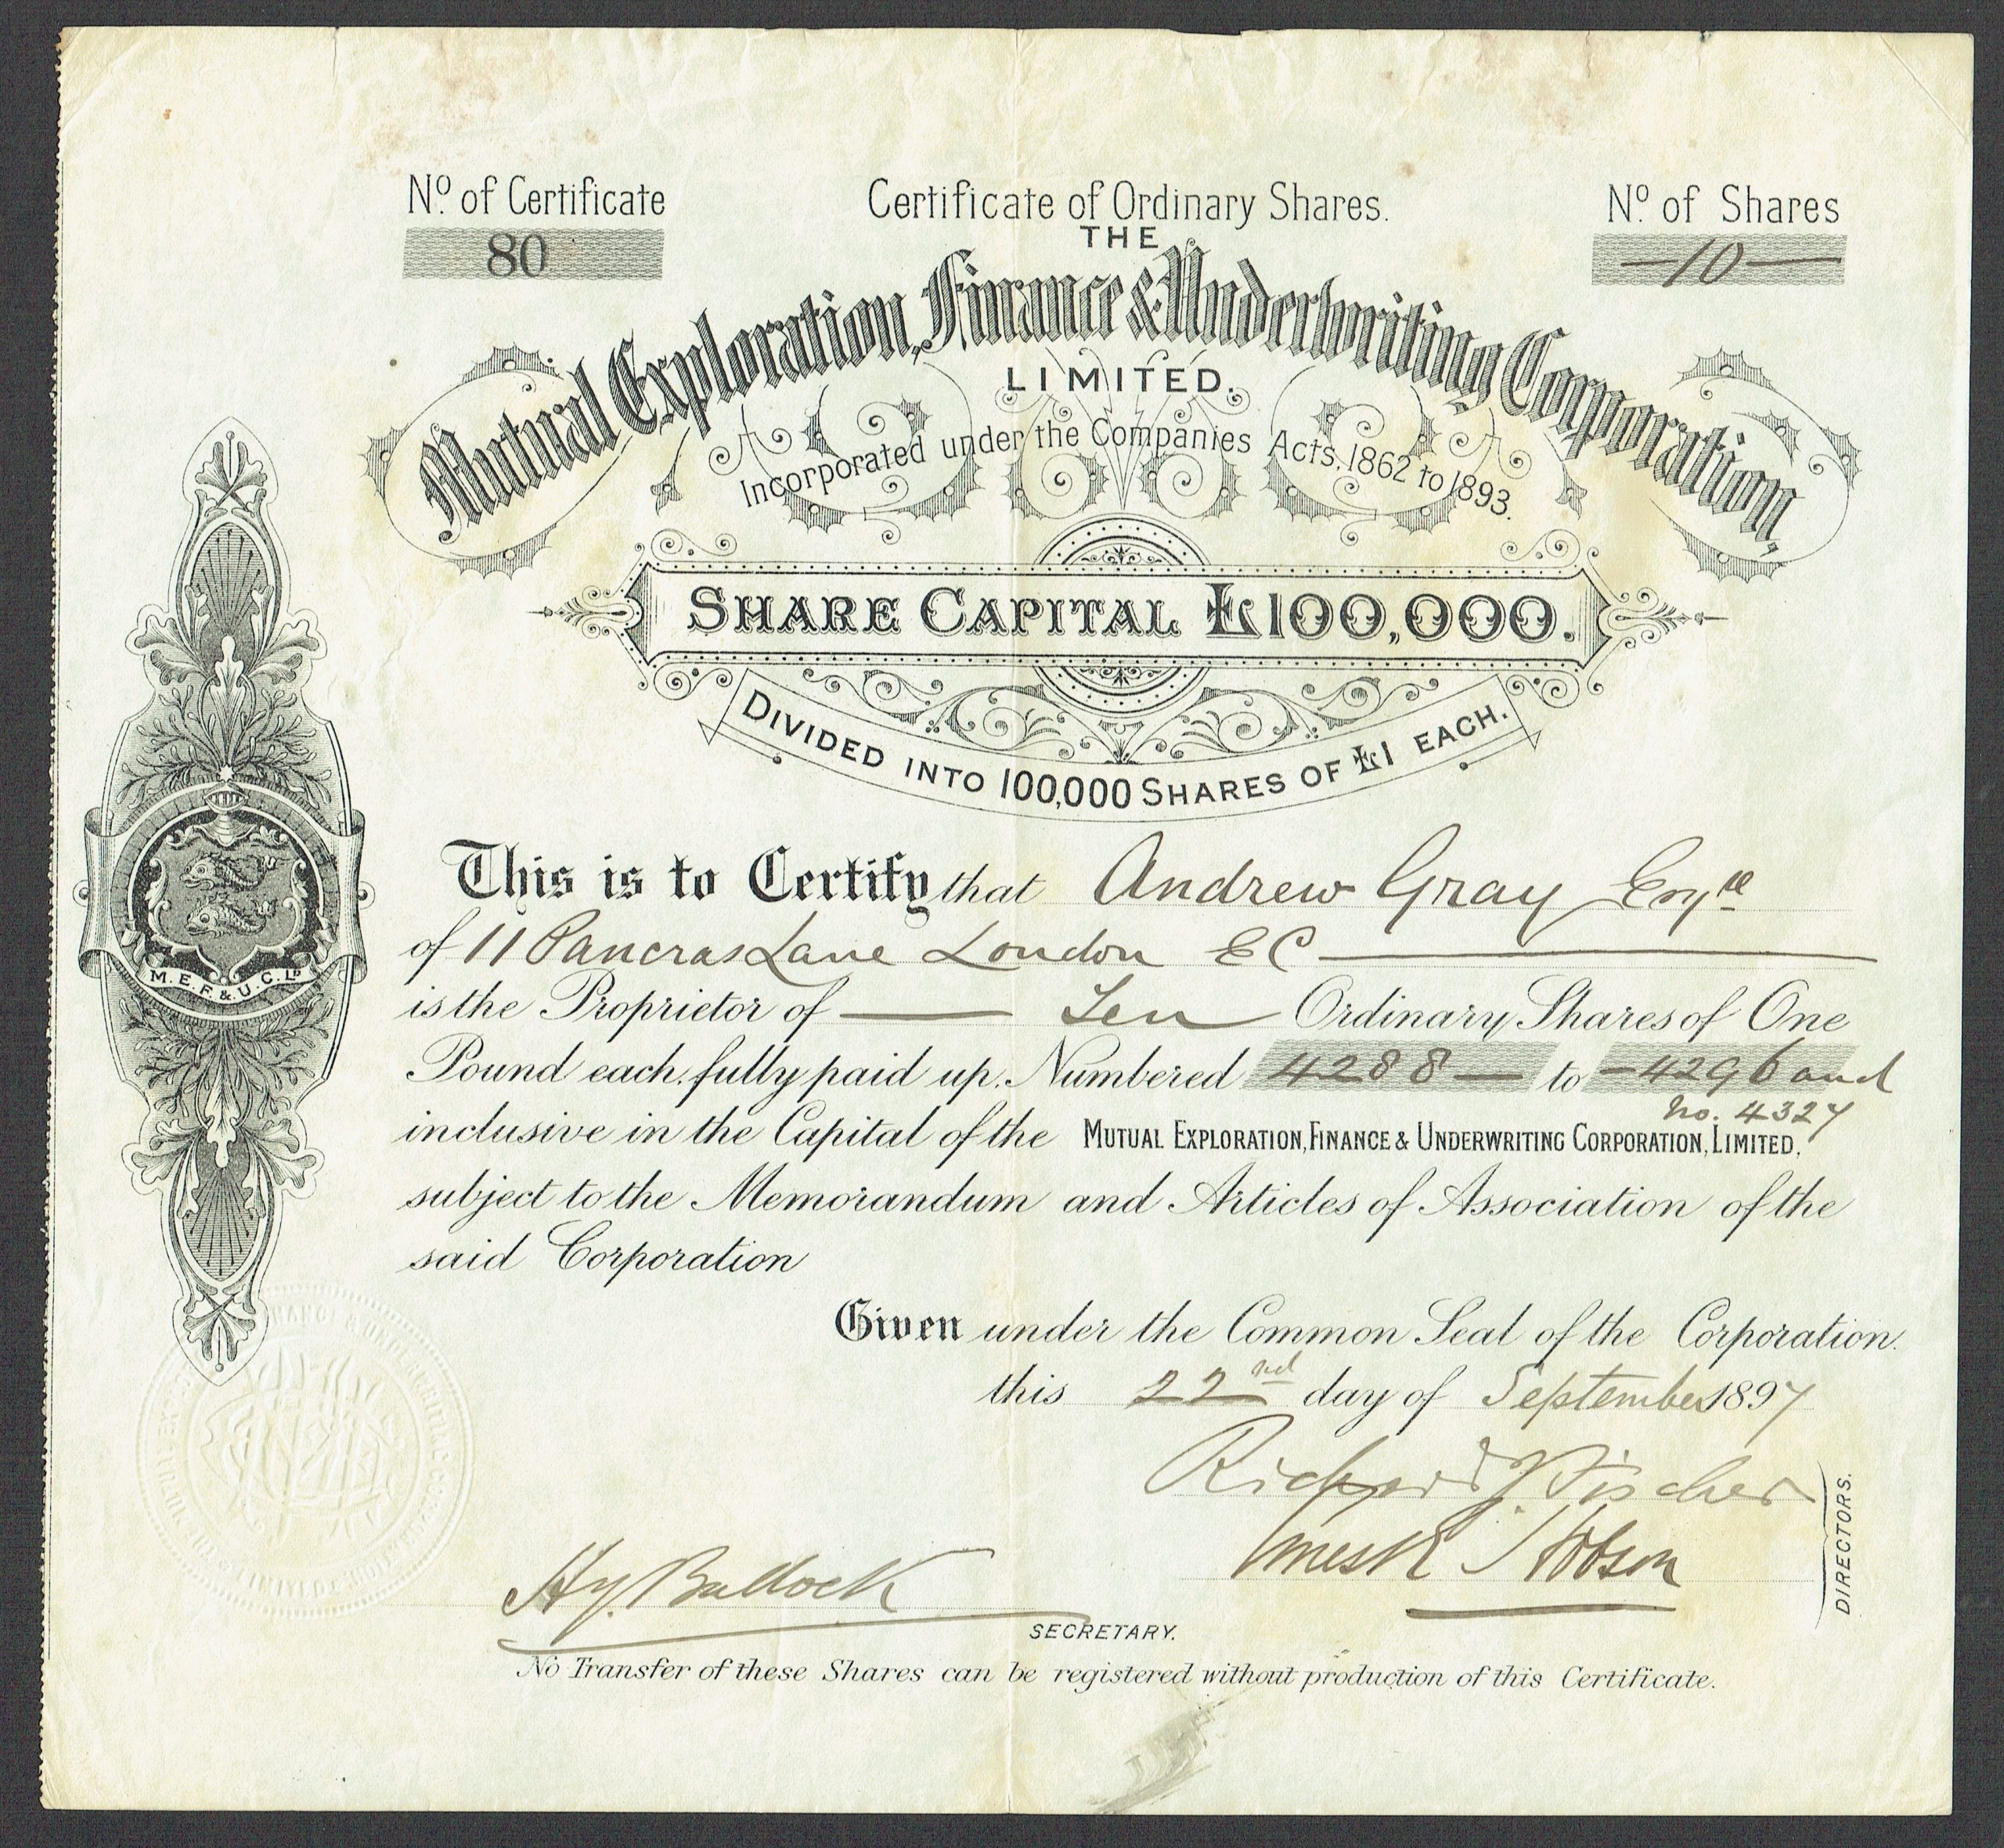 Nº of Certificate
80
Certificate of Ordinary Shares.
Nº of Shares
—10—
THE
Mutual Exploration, Finance & Underwriting Corporation,
LIMITED.
Incorporated under the Companies Acts, 1862 to 1893.
SHARE CAPITAL £100,000.
DIVIDED INTO 100,000 SHARES OF £1 EACH.
M. E. F. & U. C. LD
This is to Certify that Andrew Gray Esqre
of 11 Pancras Lane London EC
is the Proprietor of — Ten Ordinary Shares of One
Pound each, fully paid up. Numbered 4288 — to — 4296 and
no. 4327
inclusive in the Capital of the MUTUAL EXPLORATION, FINANCE & UNDERWRITING CORPORATION, LIMITED,
subject to the Memorandum and Articles of Association of the
said Corporation
Given under the Common Seal of the Corporation.
this 22nd day of September 1897
Richard J. Fischer
Hobson
DIRECTORS.
Hy. Bullock
SECRETARY.
No Transfer of these Shares can be registered without production of this Certificate.